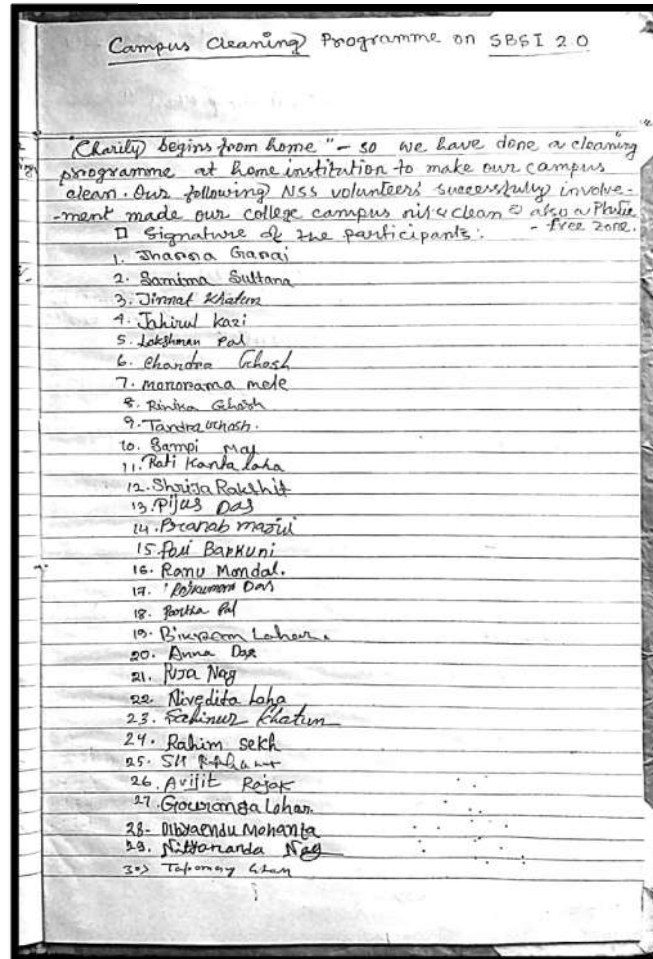 Campus Cleaning Programme on SBSI 2.0
"Charity begins from home" - so we have done a cleaning
programme at home institution to make our campus
clean. Our following NSS volunteers' successfuly involve-
-ment made our college campus nit & clean & also a Plastic
- free zone.
Signature of the participants:
1. Jharna Garai
2. Samima Sultana
3. Jinnat Khatun
4. Jahirul Kazi
5. Lakshman Pal
6. Chandra Ghosh
7. Monorama mete
8. Rinika Ghosh
9. Tandra Ghosh.
10. Sampi Maj
11. Rati Kanta laha
12. Shrija Rakshit
13. Pijus Das
14. Pranab maji
15. Pari Barkuni
16. Ranu Mondal.
17. Rajkumar Das
18. Partha Pal
19. Bikram Lohar.
20. Anna Das
21. Puja Nag
22. Nivedita Laha
23. Sahinur Khatun
24. Rahim Sekh
25. SK
26. Avijit Rajak
27. Gouranga Lohar.
28. Dibyaendu Mohanta
29. Nityananda Nag
30) Tapomoy